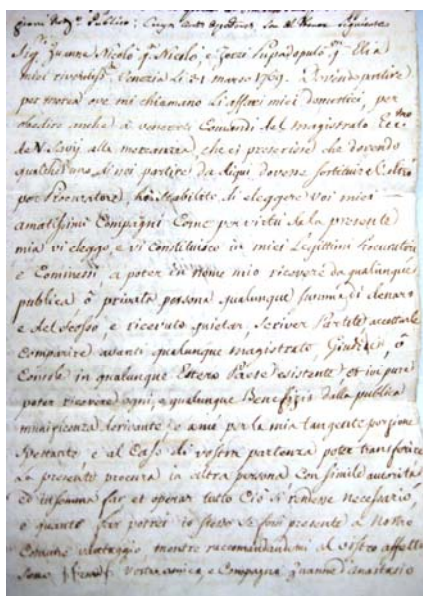 giorni del q.m Publico; Cuius tenor apertures, son del tenor seguente
Sig.r Zuanne Nicolò q.m Nicolò, e Zorzi Papadopulo q.m Elia
miei riveritiss.mi Venezia li 31 marzo 1769. Dovendo partire
per morea ove mi chiamano li affari miei domestici, per
obedire anche a venerati Comandi del magistrato Ecc.mo
de V Savij alla mercanzia, che ci prescrive che dovendo
qualcheduno di noi partire da di qui, dovesse sostituire l'altro
per Procuratore, hò stabilito di eleggere voi miei
amatissimi Compagni Come per virtù de la presente
mia vi eleggo, e vi constituisco in miei Legittimi Procuratori
e Comessi, a poter in nome mio ricevere da qualunque
publica ò privata persona qualunque summa di denaro
e del scosso, e ricevuto quietar, scriver Partite accettarle
comparire avanti qualunque magistrato, Giudice, ò
Console in qualunque Estero Paese esistente et ivi pure
poter ricevere ogni, e qualunque Benefizio dalla publica
munificenza derivante e a me per la mia tangente porzione
spettante, e al Caso di vostra partenza poter transferire
la presente procura in altra persona con simile autorità
ed insomma far et operar tutto Ciò si rendesse necessario,
e quanto far potrei io stesso se fossi presente a nostro
Comune vantaggio, mentre raccomandandomi al vostro affetto
sono vostro amico, e Compagno Zuanne d'Anastasio